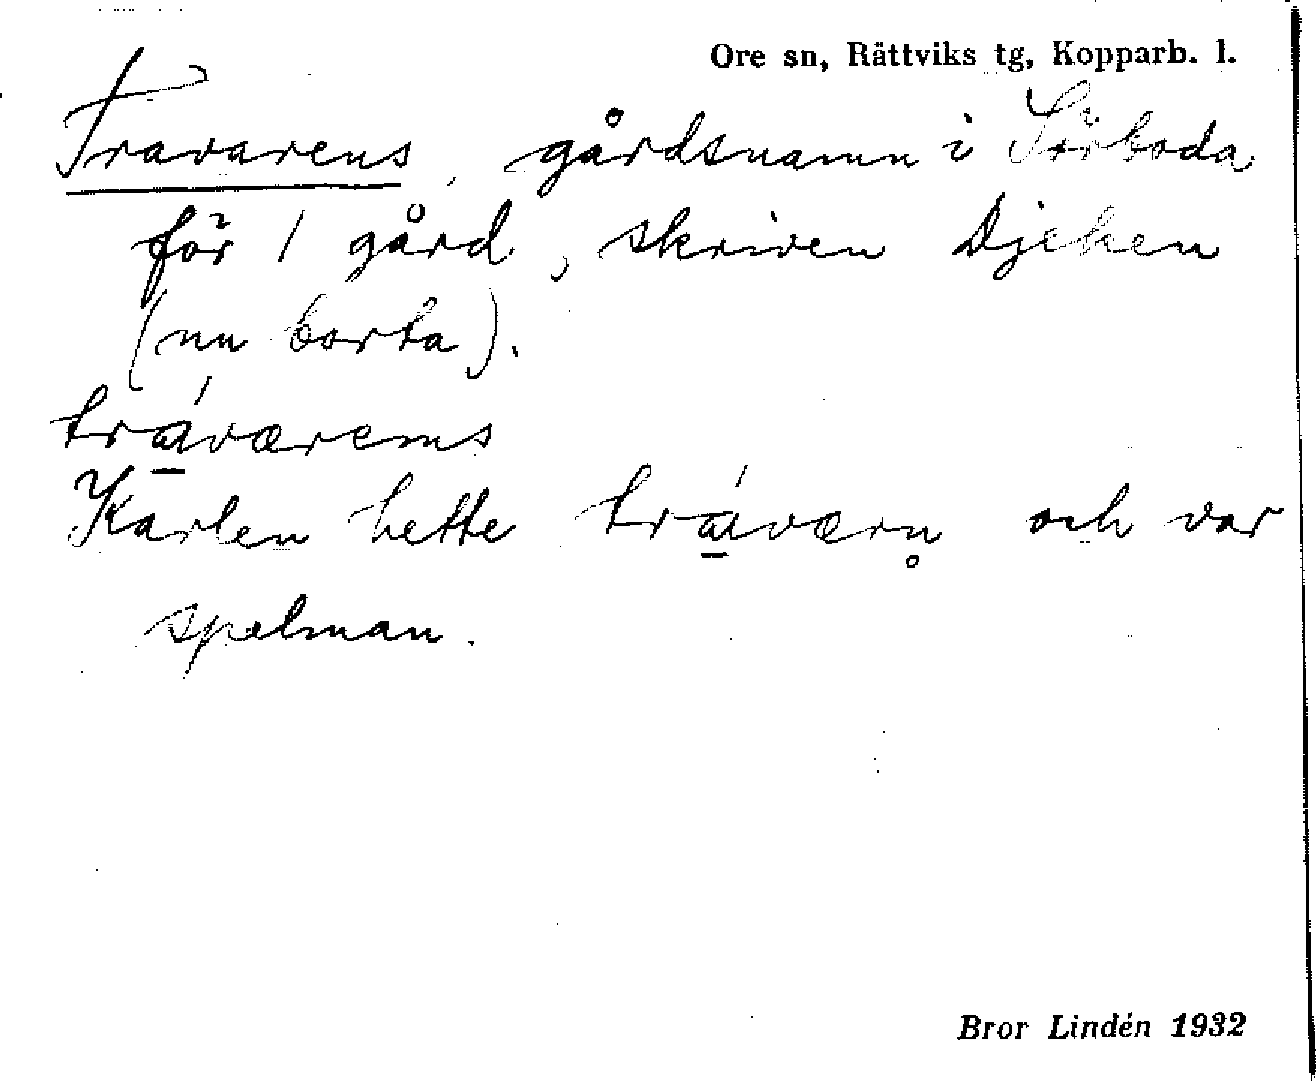 Ore sn, Rättviks tg, Kopparb. l.
Travarens, gårdsnamn i Sörboda
för 1 gård, skriven Djeken
(nu borta).
trá̱værems
Karlen hette trá̱værn̥ och var
spelman.
Bror Lindén 1932